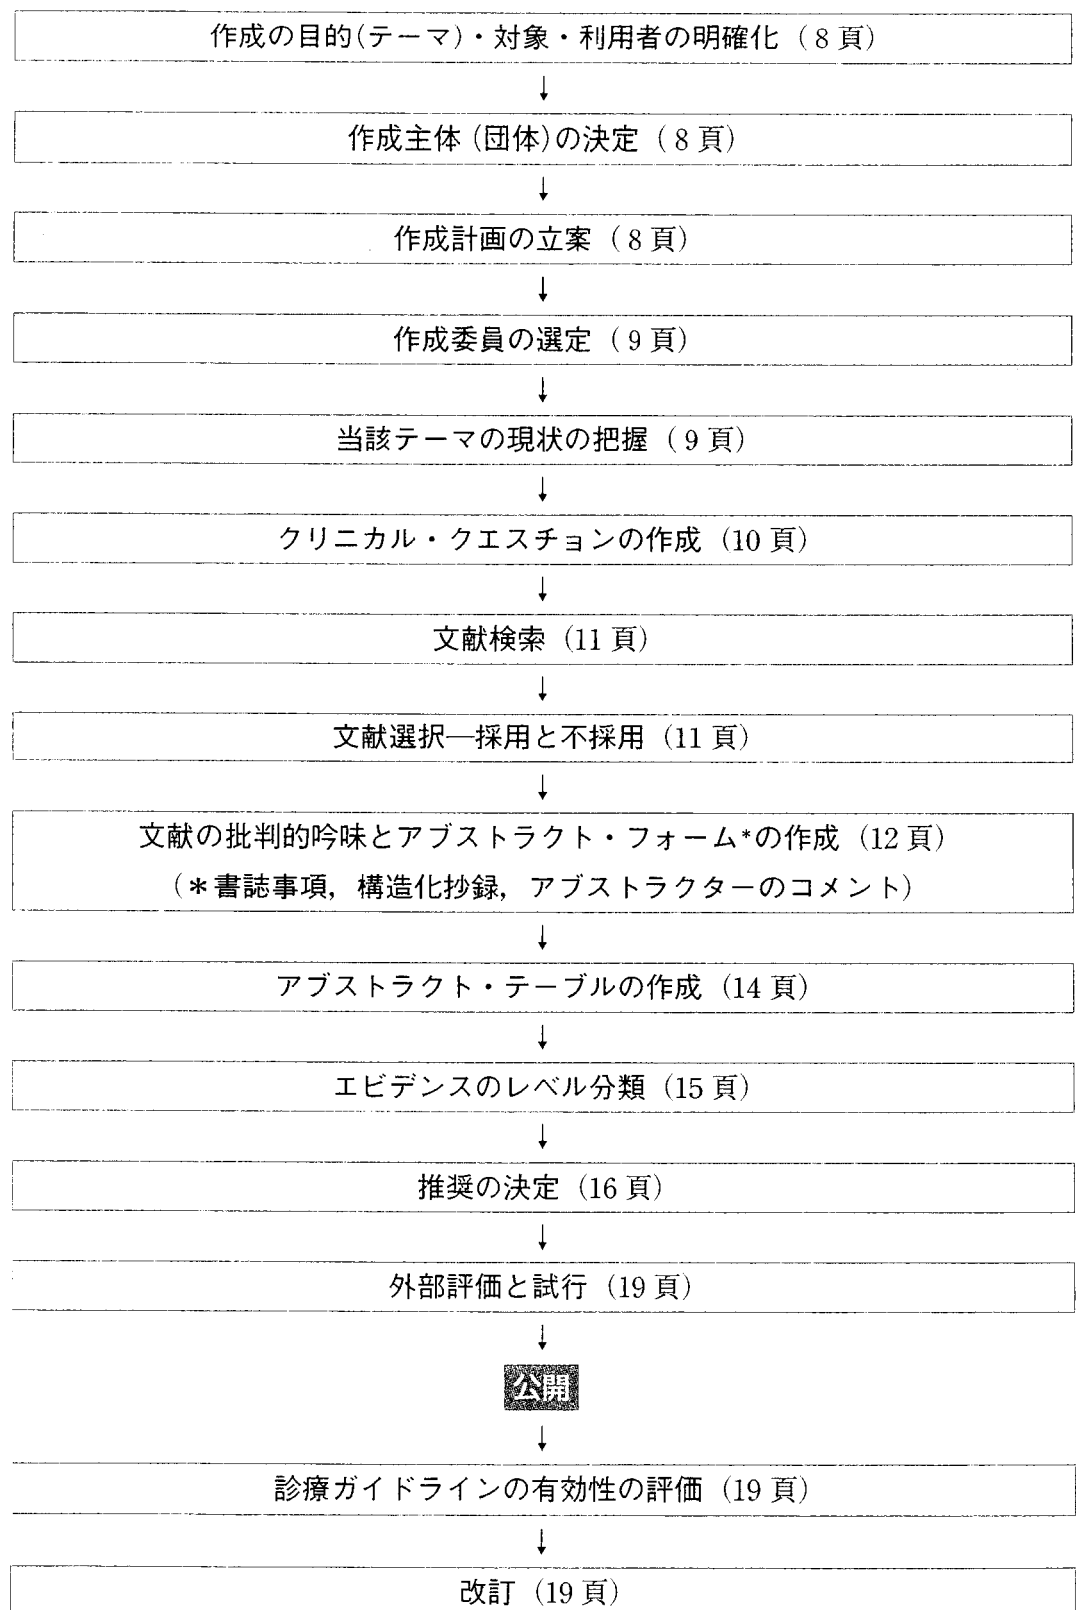 作成の目的(テーマ)・対象・利用者の明確化（8頁）
↓
作成主体(団体)の決定（8頁）
↓
作成計画の立案（8頁）
↓
作成委員の選定（9頁）
↓
当該テーマの現状の把握（9頁）
↓
クリニカル・クエスチョンの作成（10頁）
↓
文献検索（11頁）
↓
文献選択―採用と不採用（11頁）
↓
文献の批判的吟味とアブストラクト・フォーム*の作成（12頁）
（＊書誌事項，構造化抄録，アブストラクターのコメント）
↓
アブストラクト・テーブルの作成（14頁）
↓
エビデンスのレベル分類（15頁）
↓
推奨の決定（16頁）
↓
外部評価と試行（19頁）
↓
公開
↓
診療ガイドラインの有効性の評価（19頁）
↓
改訂（19頁）